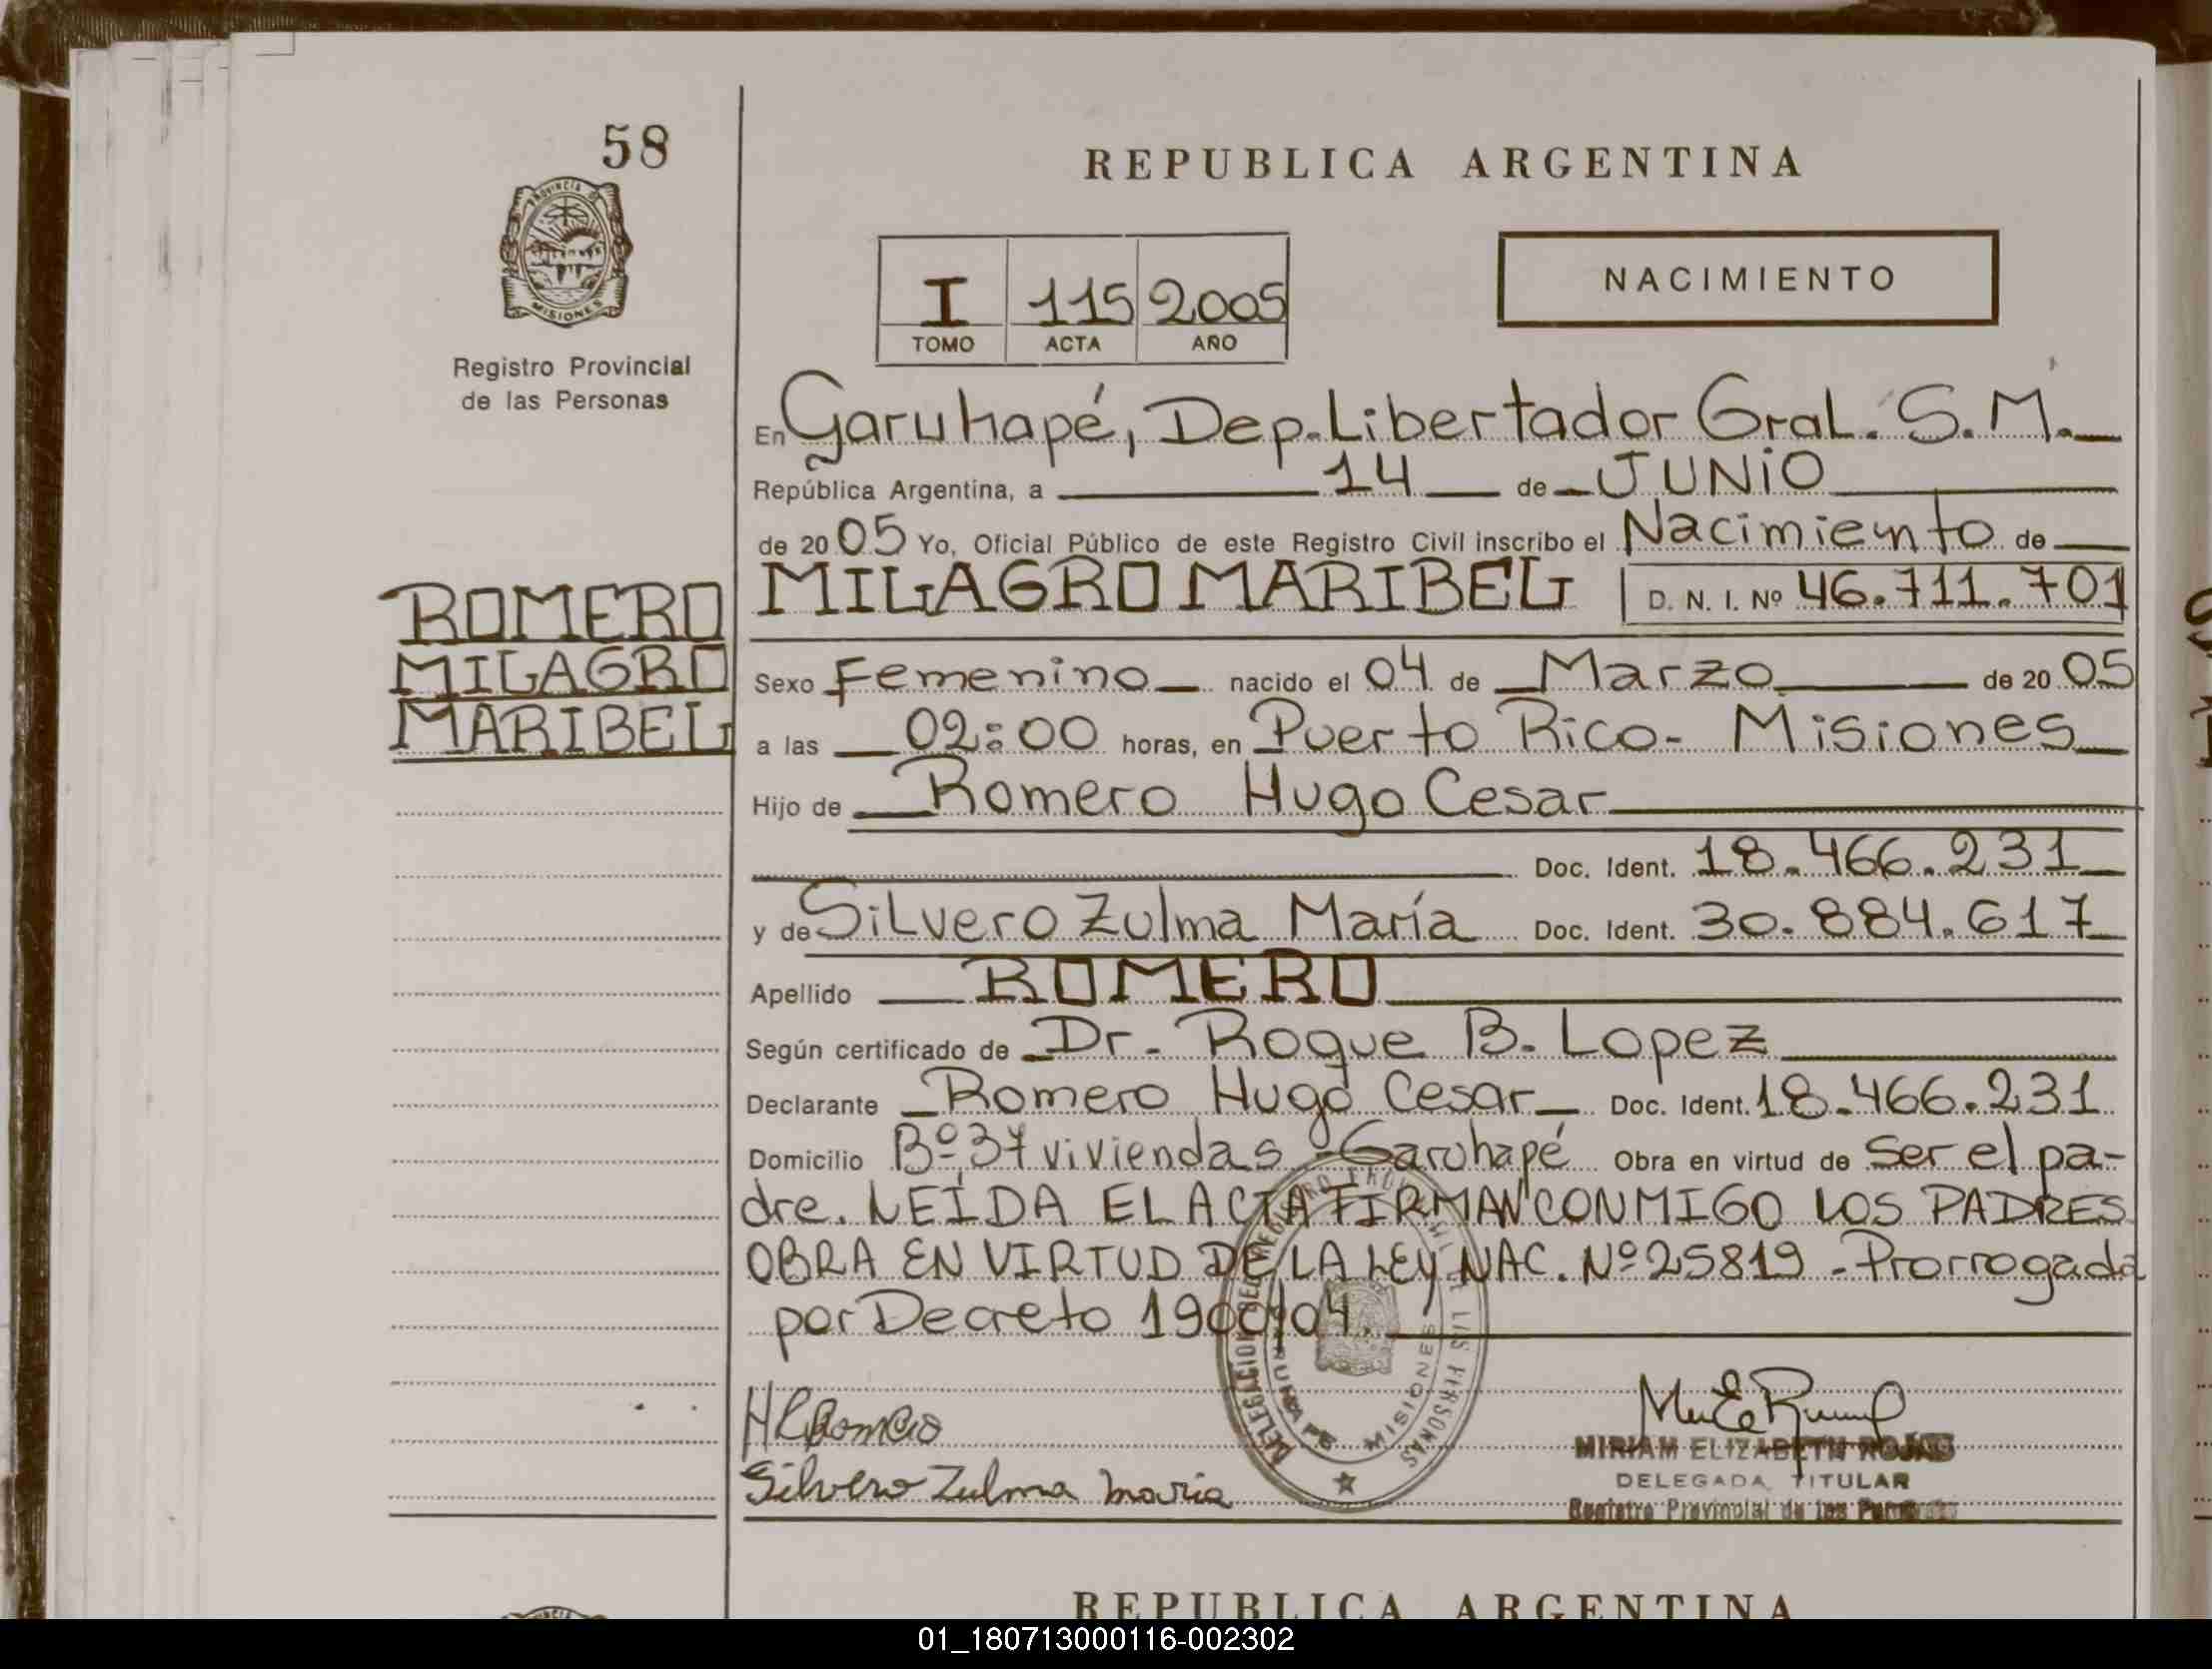 58
REPUBLICA ARGENTINA
PROVINCIA DE
MISIONES
I 115 2005
TOMO ACTA AÑO
NACIMIENTO
Registro Provincial
de las Personas
En Garuhapé, Dep. Libertador Gral. S. M.
República Argentina, a 14 de JUNIO
de 20 05 Yo, Oficial Público de este Registro Civil inscribo el Nacimiento de
ROMERO
MILAGRO
MARIBEL
MILAGRO MARIBEL D. N. I. Nº 46.711.701
Sexo Femenino nacido el 04 de Marzo de 20 05
a las 02:00 horas, en Puerto Rico - Misiones
Hijo de Romero Hugo Cesar
Doc. Ident. 18.466.231
y de Silvero Zulma María Doc. Ident. 30.884.617
Apellido ROMERO
Según certificado de Dr. Roque B. Lopez
Declarante Romero Hugo Cesar Doc. Ident. 18.466.231
Domicilio Bº 37 viviendas - Garuhapé Obra en virtud de Ser el pa-
dre. LEÍDA EL ACTA FIRMAN CONMIGO LOS PADRES
OBRA EN VIRTUD DE LA LEY NAC. Nº 25819 - Prorrogada
por Decreto 1900/04.
H C Romero
Silvero Zulma Maria
MISIONES
MIRIAM ELIZABETH ROJAS
DELEGADA TITULAR
Registro Provincial de las Personas
REPUBLICA ARGENTINA
01_180713000116-002302